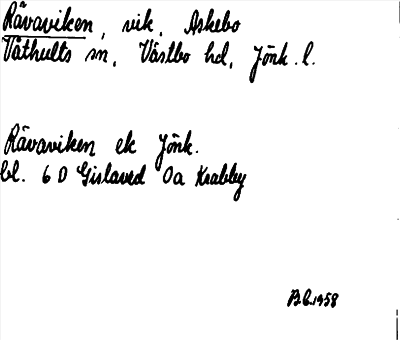 Rävaviken, vik, Askebo
Våthults sn, Västbo hd, Jönk. l.
Rävaviken ek Jönk.
bl. 6 D Gislaved 0a Krabby
B.b. 1958